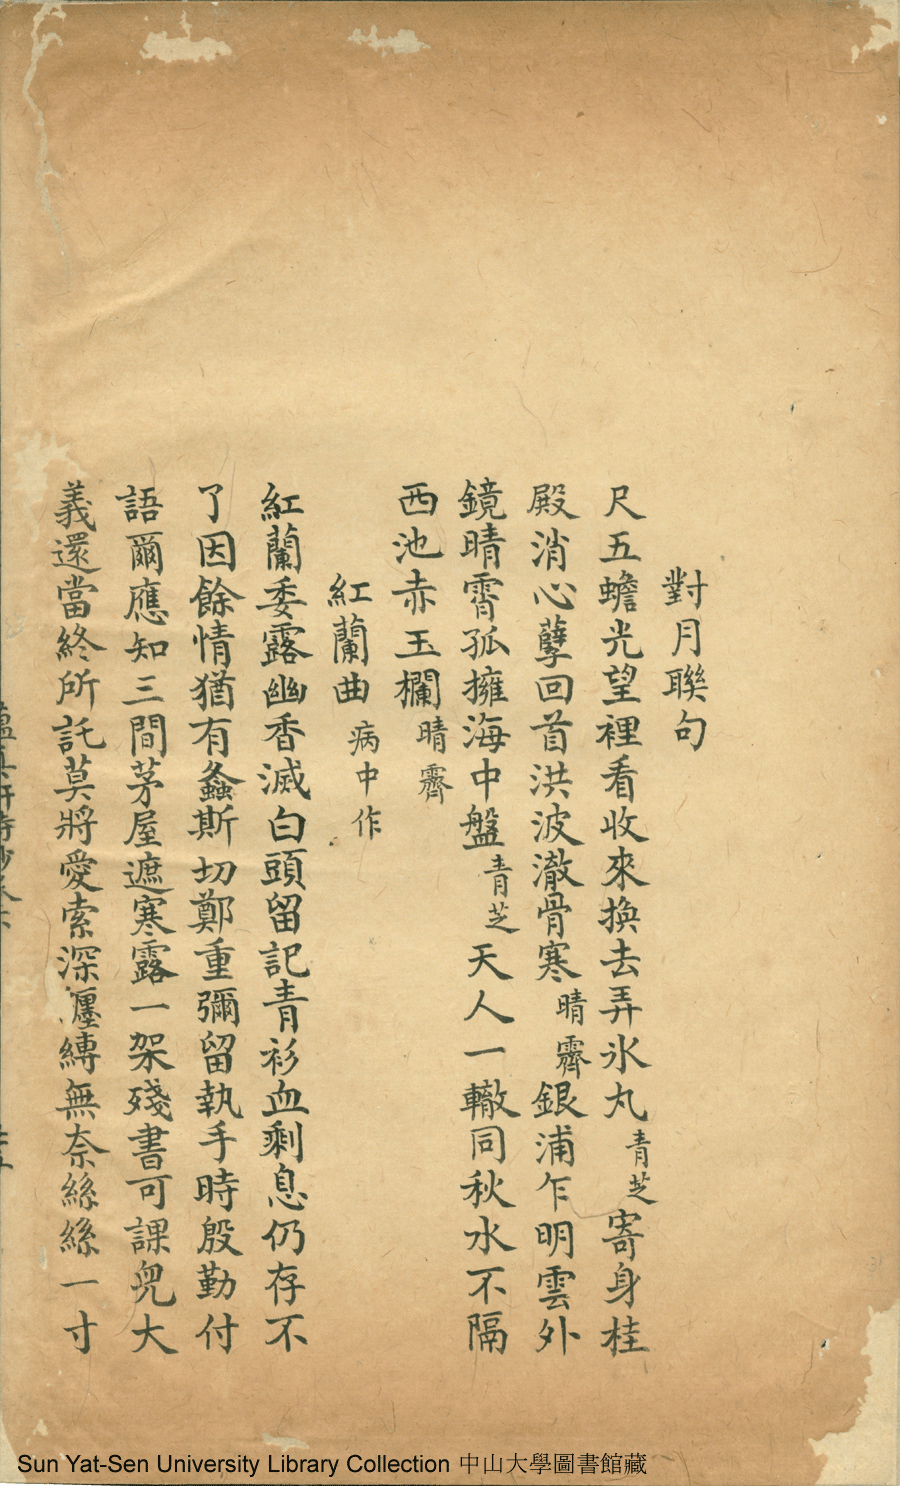 對月聯句
尺五蟾光望裡看收來換去弄氷丸青芝寄身桂
殿消心孽回首洪波澈骨寒晴霽銀浦乍明雲外
鏡晴霄孤擁海中盤青芝天人一轍同秋水不隔
西池赤玉欄晴霽
紅蘭曲病中作
紅蘭委露幽香滅白頭留記青衫血剩息仍存不
了因餘情猶有螽斯切鄭重彌留執手時殷勤付
語爾應知三間茅屋遮寒露一架殘書可課兒大
義還當終所託莫將愛索深纏縳無奈絲絲一寸
Sun Yat-Sen University Library Collection 中山大學圖書館藏